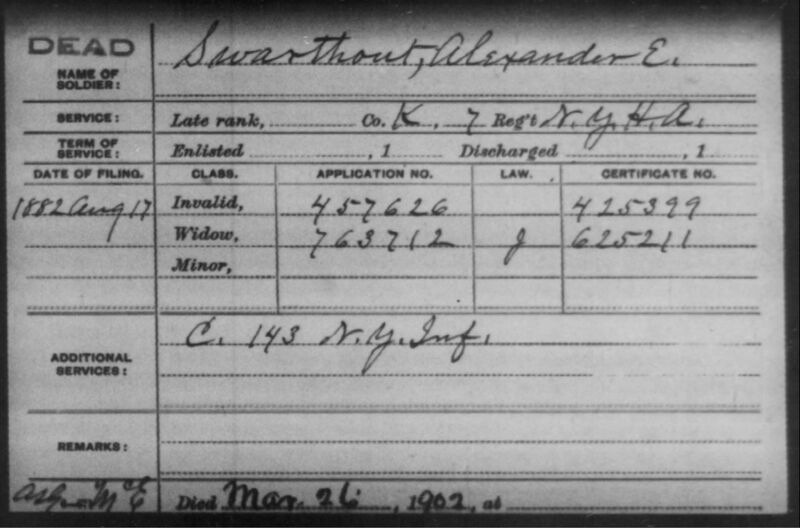 DEAD
NAME OF SOLDIER: Swarthout, Alexander E.
SERVICE: Late rank, Co. K, 7 Reg't N.Y.H.A.
TERM OF SERVICE: Enlisted , 1 Discharged , 1
DATE OF FILING. CLASS. APPLICATION NO. LAW. CERTIFICATE NO.
1882 Aug 17 Invalid, 457626 425399
Widow, 763712 J 625211
Minor,
ADDITIONAL SERVICES: C. 143 N.Y. Inf.
REMARKS:
Died Mar. 26, 1902, at